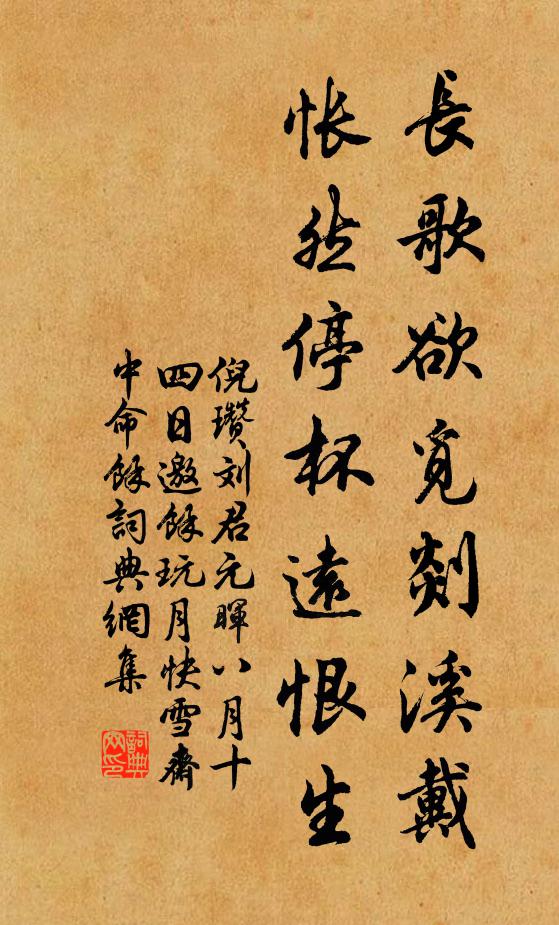 長歌欲覓剡溪戴
悵然停杯遠恨生
倪瓚刘君元暉八月十
四日邀餘玩月快雪齋
中命餘詞典網集
詞典網印